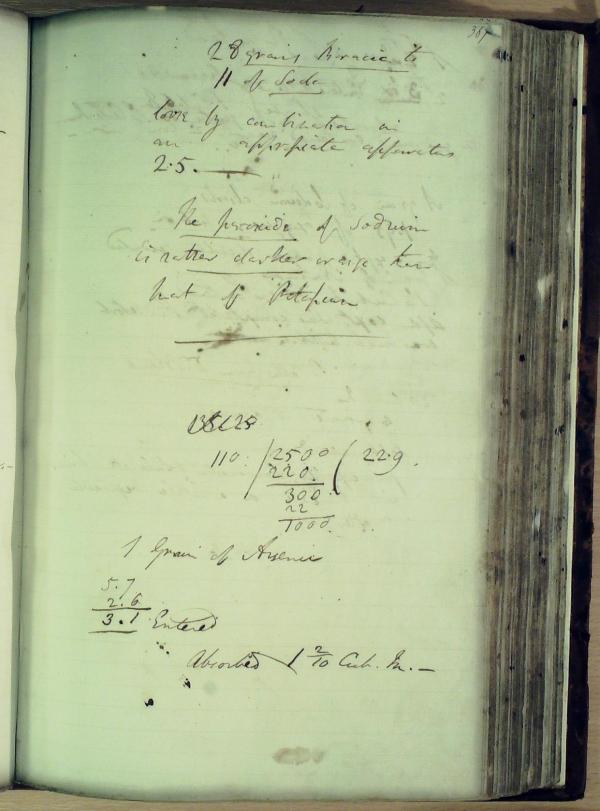 367
28 grains Boracic to
11 of Soda
lose by combination in
an appropriate apparatus
2.5.
The peroxide of Sodium
is rather darker orange than
that of Potassium
110 2500 ( 22.9.
220
300
22
1000
1 Grain of Arsenic
5.7
2.6
3.1 Entered
Absorbed 1 2/10 Cub. In. –